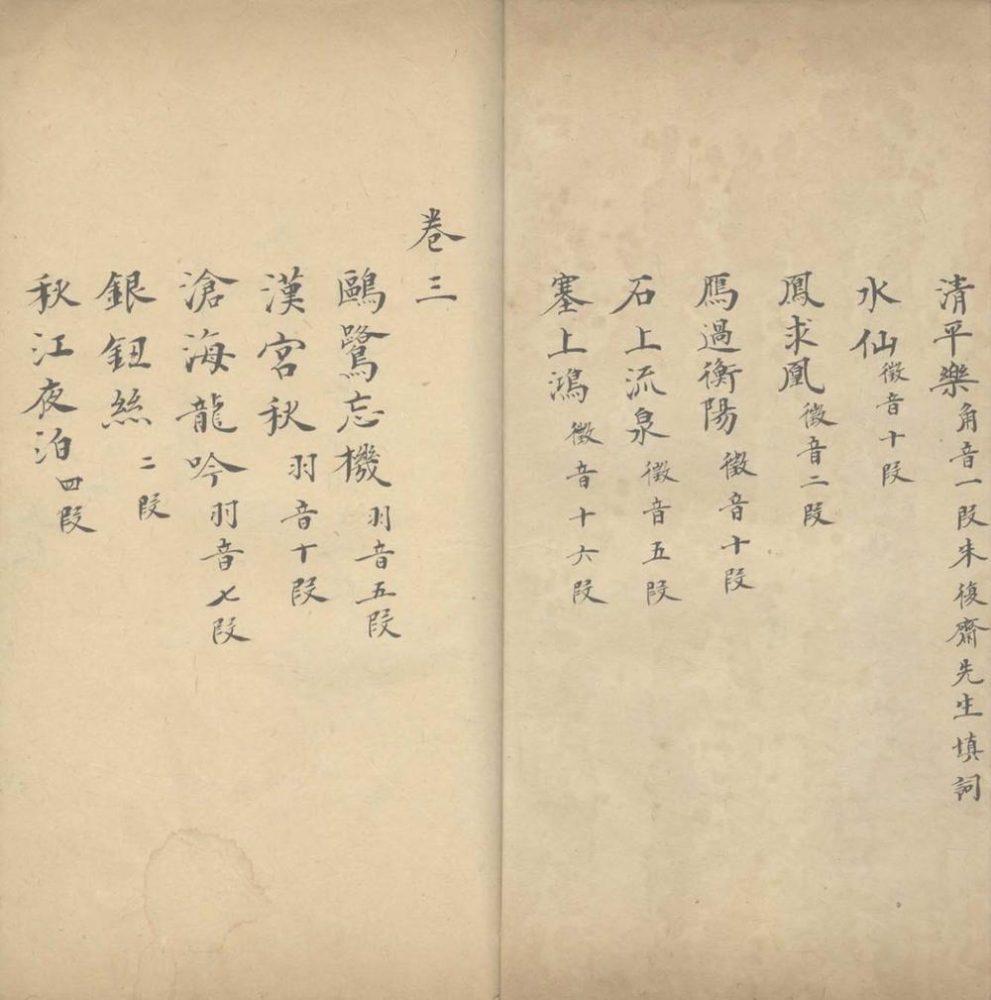 清平樂角音一段來復齋先生填詞
水仙徵音十段
鳳求凰徵音二段
鴈過衡陽徵音十段
石上流泉徵音五段
塞上鴻徵音十六段
卷三
鷗鷺忘機羽音五段
漢宮秋羽音十段
滄海龍吟羽音七段
銀鈕絲二段
秋江夜泊四段